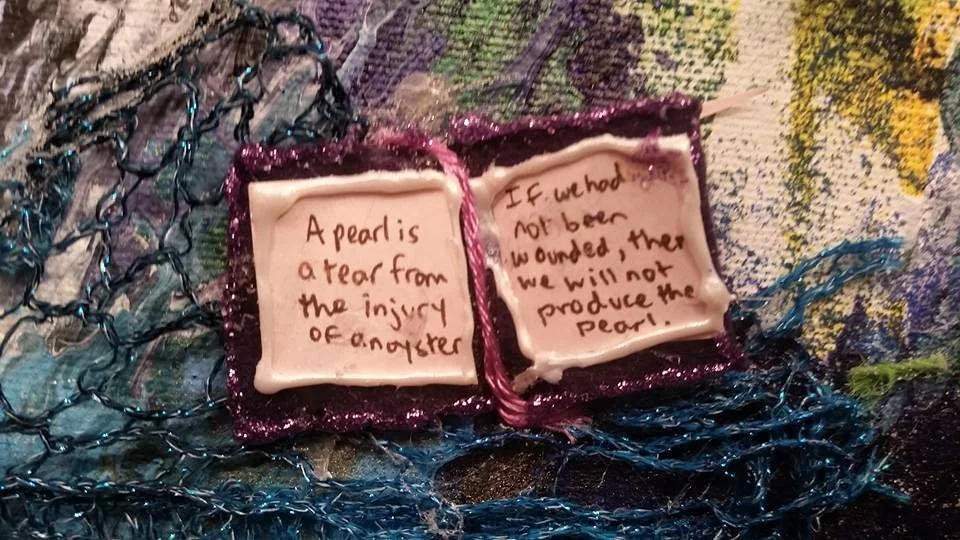 A pearl is
a tear from
the injury
of an oyster
If we had
not been
wounded, then
we will not
produce the
pearl.